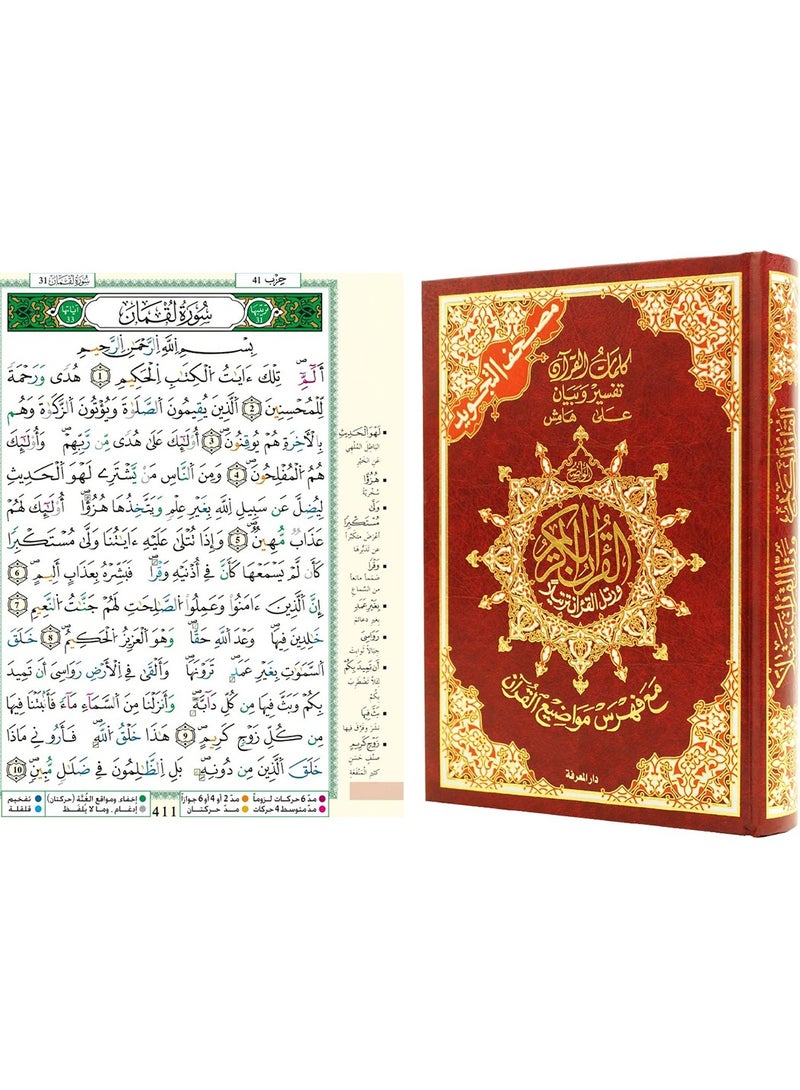 سُورَةُ لُقْمَان 31
حِزْب 41
ترتيبها 31
سُورَةُ لُقْمَان
آياتها 33
بِسْمِ اللَّهِ الرَّحْمَٰنِ الرَّحِيمِ
أَلَٓمِّٓ تِلْكَ ءَايَٰتُ الْكِتَٰبِ الْحَكِيمِ 1 هُدًى وَرَحْمَةً
لِّلْمُحْسِنِينَ 2 الَّذِينَ يُقِيمُونَ الصَّلَوٰةَ وَيُوتُونَ الزَّكَوٰةَ وَهُم
بِالَاخِرَةِ هُمْ يُوقِنُونَ 3 أُوْلَٰٓئِكَ عَلَىٰ هُدًى مِّن رَّبِّهِمْ وَأُوْلَٰٓئِكَ
هُمُ الْمُفْلِحُونَ 4 وَمِنَ النَّاسِ مَنْ يَّشْتَرِے لَهْوَ الْحَدِيثِ
لِيُضِلَّ عَن سَبِيلِ اللَّهِ بِغَيْرِ عِلْمٍ وَيَتَّخِذُهَا هُزُؤًا أُوْلَٰٓئِكَ لَهُمْ
عَذَابٌ مُّهِينٌ 5 وَإِذَا تُتْلَىٰ عَلَيْهِ ءَايَٰتُنَا وَلَّىٰ مُسْتَكْبِرًا
كَأَن لَّمْ يَسْمَعْهَا كَأَنَّ فِےٓ أُذْنَيْهِ وَقْرًا فَبَشِّرْهُ بِعَذَابٍ اَلِيمٍ 6
إِنَّ الَّذِينَ ءَامَنُواْ وَعَمِلُواْ الصَّٰلِحَٰتِ لَهُمْ جَنَّٰتُ النَّعِيمِ 7
خَٰلِدِينَ فِيهَا وَعْدَ اللَّهِ حَقًّا وَهُوَ الْعَزِيزُ الْحَكِيمُ 8 خَلَقَ
السَّمَٰوَٰتِ بِغَيْرِ عَمَدٍ تَرَوْنَهَا وَأَلْقَىٰ فِے الَارْضِ رَوَٰسِيَ أَن تَمِيدَ
بِكُمْ وَبَثَّ فِيهَا مِن كُلِّ دَآبَّةٍ وَأَنزَلْنَا مِنَ السَّمَآءِ مَآءً فَأَنۢبَتْنَا فِيهَا
مِن كُلِّ زَوْجٍ كَرِيمٍ 9 هَٰذَا خَلْقُ اللَّهِ فَأَرُونِے مَاذَا
خَلَقَ الَّذِينَ مِن دُونِهِ بَلِ الظَّٰلِمُونَ فِے ضَلَٰلٍ مُّبِينٍ 10
لَهْوَ الْحَدِيثِ
الباطل المُلهي
عن الخير
هُزُؤًا
سُخْرِيَّة
وَلَّى
مُسْتَكْبِرًا
أعرض متكبراً
عن تدبُّرها
وَقْرًا
صمماً مانعاً
من السَّماع
بِغَيْرِ عَمَدٍ
بغير دعائم
رَوَاسِيَ
جبالاً ثوابت
أَن تَمِيدَ بِكُمْ
لئلا تضطرب
بكم
بَثَّ فِيهَا
نشر وفرّق فيها
زَوْجٍ كَرِيمٍ
صنفٍ حسنٍ
كثير المنفعة
مدّ 6 حركات لزوماً
مدّ 2 أو 4 أو 6 جوازاً
إخفاء، ومواقع الغُنَّة (حركتان)
تفخيم
مدّ متوسط 4 حركات
مدّ حركتان
411
إدغام، وما لا يُلفَظ
قلقلة
مصحف التجويد
كلمات القرآن
تفسير وبيان
على هامش
القرآن الكريم
ورتل القرآن ترتيلا
مع فهرس مواضيع القرآن
دار المعرفة
القرآن الكريم
ورتل القرآن ترتيلا